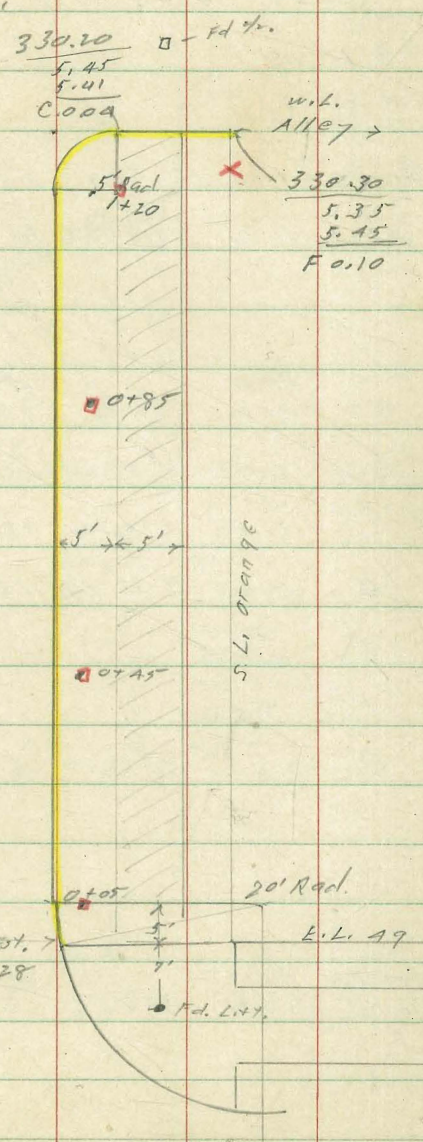 330.20
5.45
5.41
C 0.04
Fd
W.L.
Alley →
330.30
5.35
5.45
F 0.10
5' Rad
1+20
0+85
5' 5'
S.L. Orange
0+45
0+05
20' Rad.
5'
E.L. 49
28
7'
Fd. L.+T.